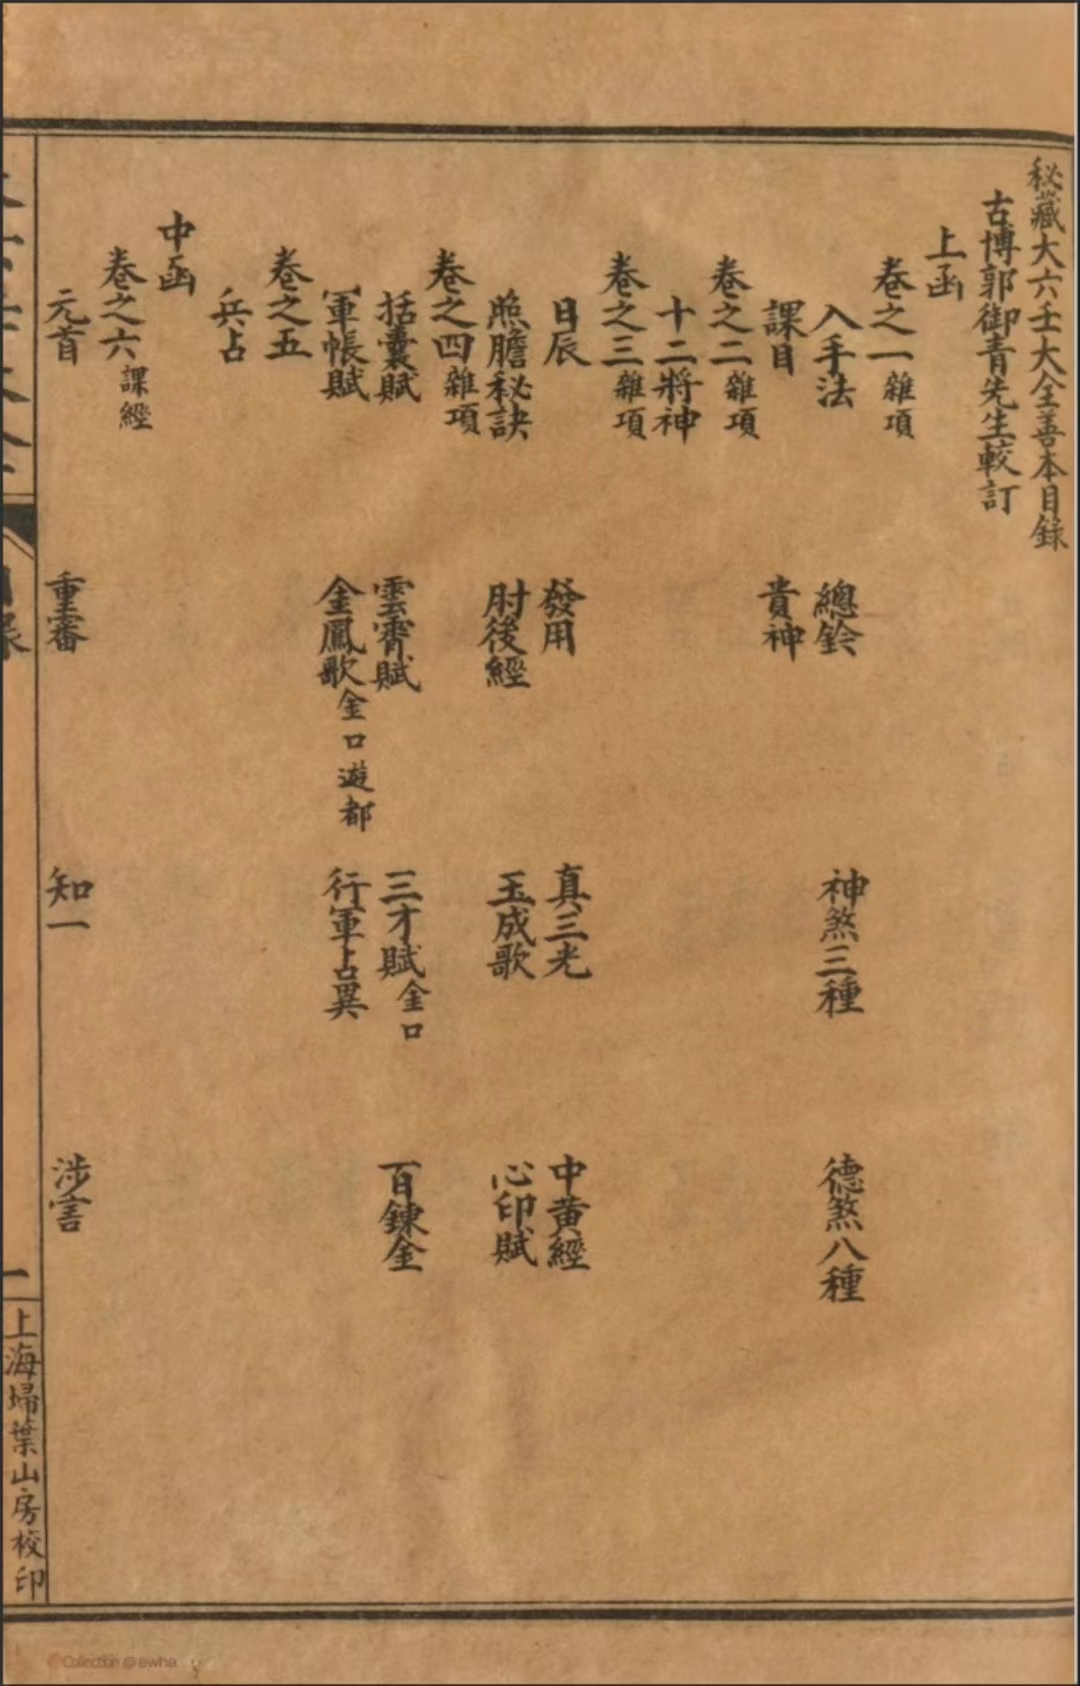 秘藏大六壬大全善本目錄
古博郭御青先生較訂
上函
卷之一 雜項
入手法 總鈐 神煞三種 德煞八種
課目 貴神
卷之二 雜項
十二將神
卷之三 雜項
日辰 發用 真三光 中黃經
照膽秘訣 肘後經 玉成歌 心印賦
卷之四 雜項
括囊賦 雲霄賦 三才賦 金口 百鍊金
軍帳賦 金鳳歌 金口遊都 行軍占異
卷之五
兵占
中函
卷之六 課經
元首 重審 知一 涉害
一
上海埽葉山房校印
Collection @ ewha